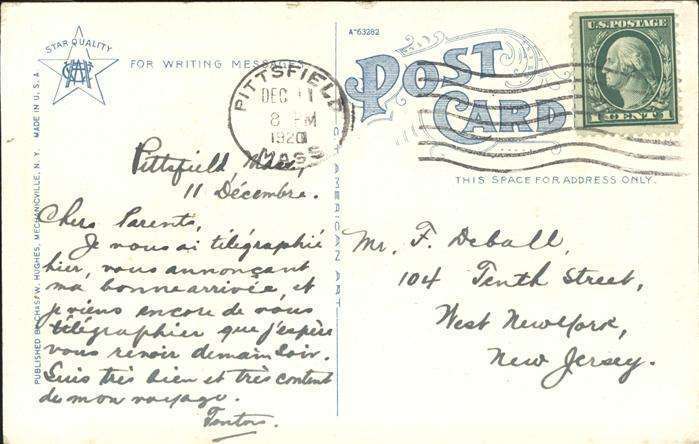 STAR QUALITY
CWH
FOR WRITING MESSAGES
A-63282
POST
CARD
U.S. POSTAGE
1 CENT 1
PITTSFIELD
DEC 11
8 PM
1920
MASS
THIS SPACE FOR ADDRESS ONLY.
PUBLISHED BY CHAS. W. HUGHES, MECHANICVILLE, N. Y. MADE IN U. S. A.
AMERICAN ART
Pittsfield, Mass,
11 Décembre.
Chers Parents,
Je vous ai télégraphié
hier, vous annonçant
ma bonne arrivée, et
je viens encore de vous
télégraphier que j'espère
vous revoir demain soir.
Suis très bien et très content
de mon voyage.
Mr. F. Deball,
104 Tenth Street,
West New York,
New Jersey.